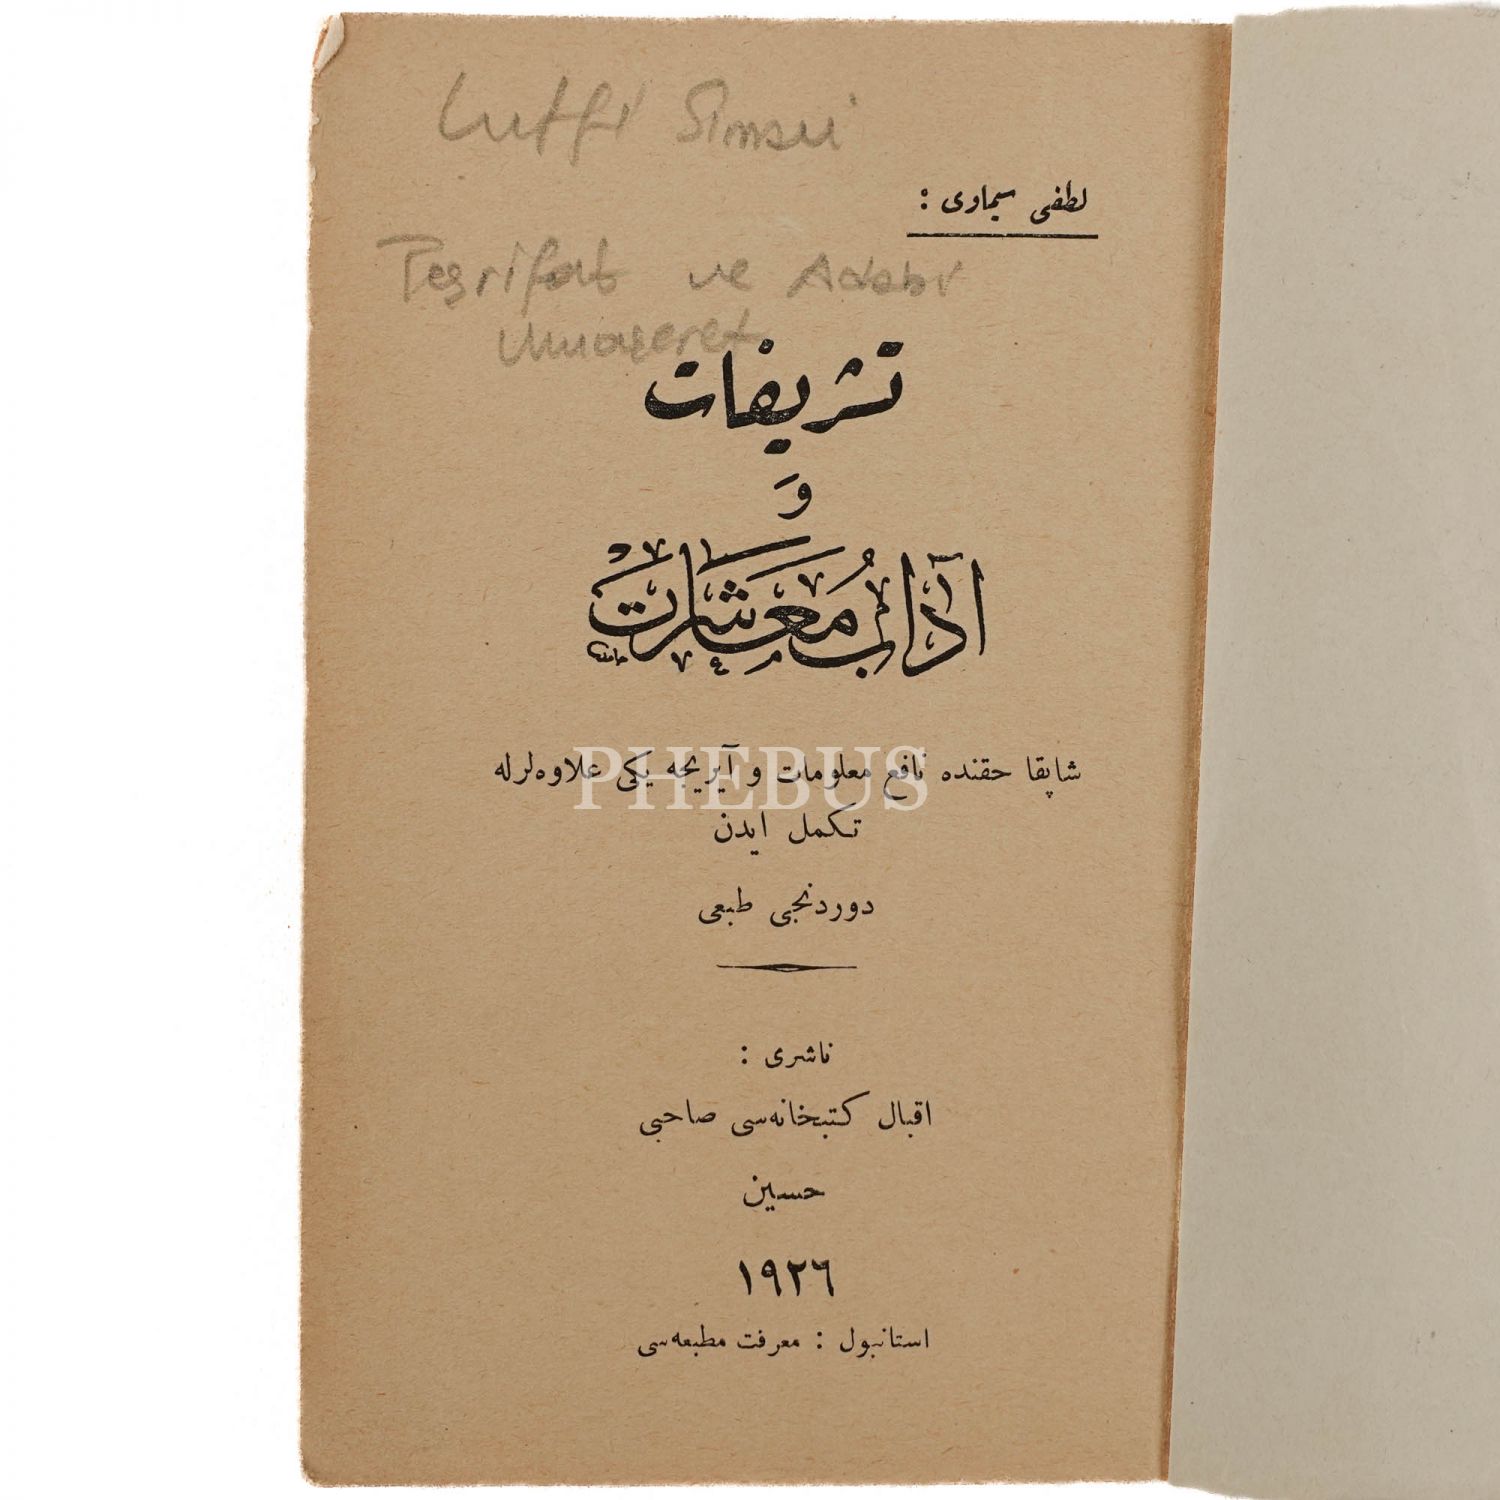 Lutfi Simavi
لطفی سیماوی :
Teşrifat ve Adabı
Muaşeret
تشریفات
و
آداب معاشرت
شاپقا حقنده نافع معلومات و آیریجه یکی علاوه‌لرله
PHEBUS
تکمل ایدن
دوردنجی طبعی
ناشری :
اقبال کتبخانه‌سی صاحبی
حسین
١٩٢٦
استانبول : معرفت مطبعه‌سی